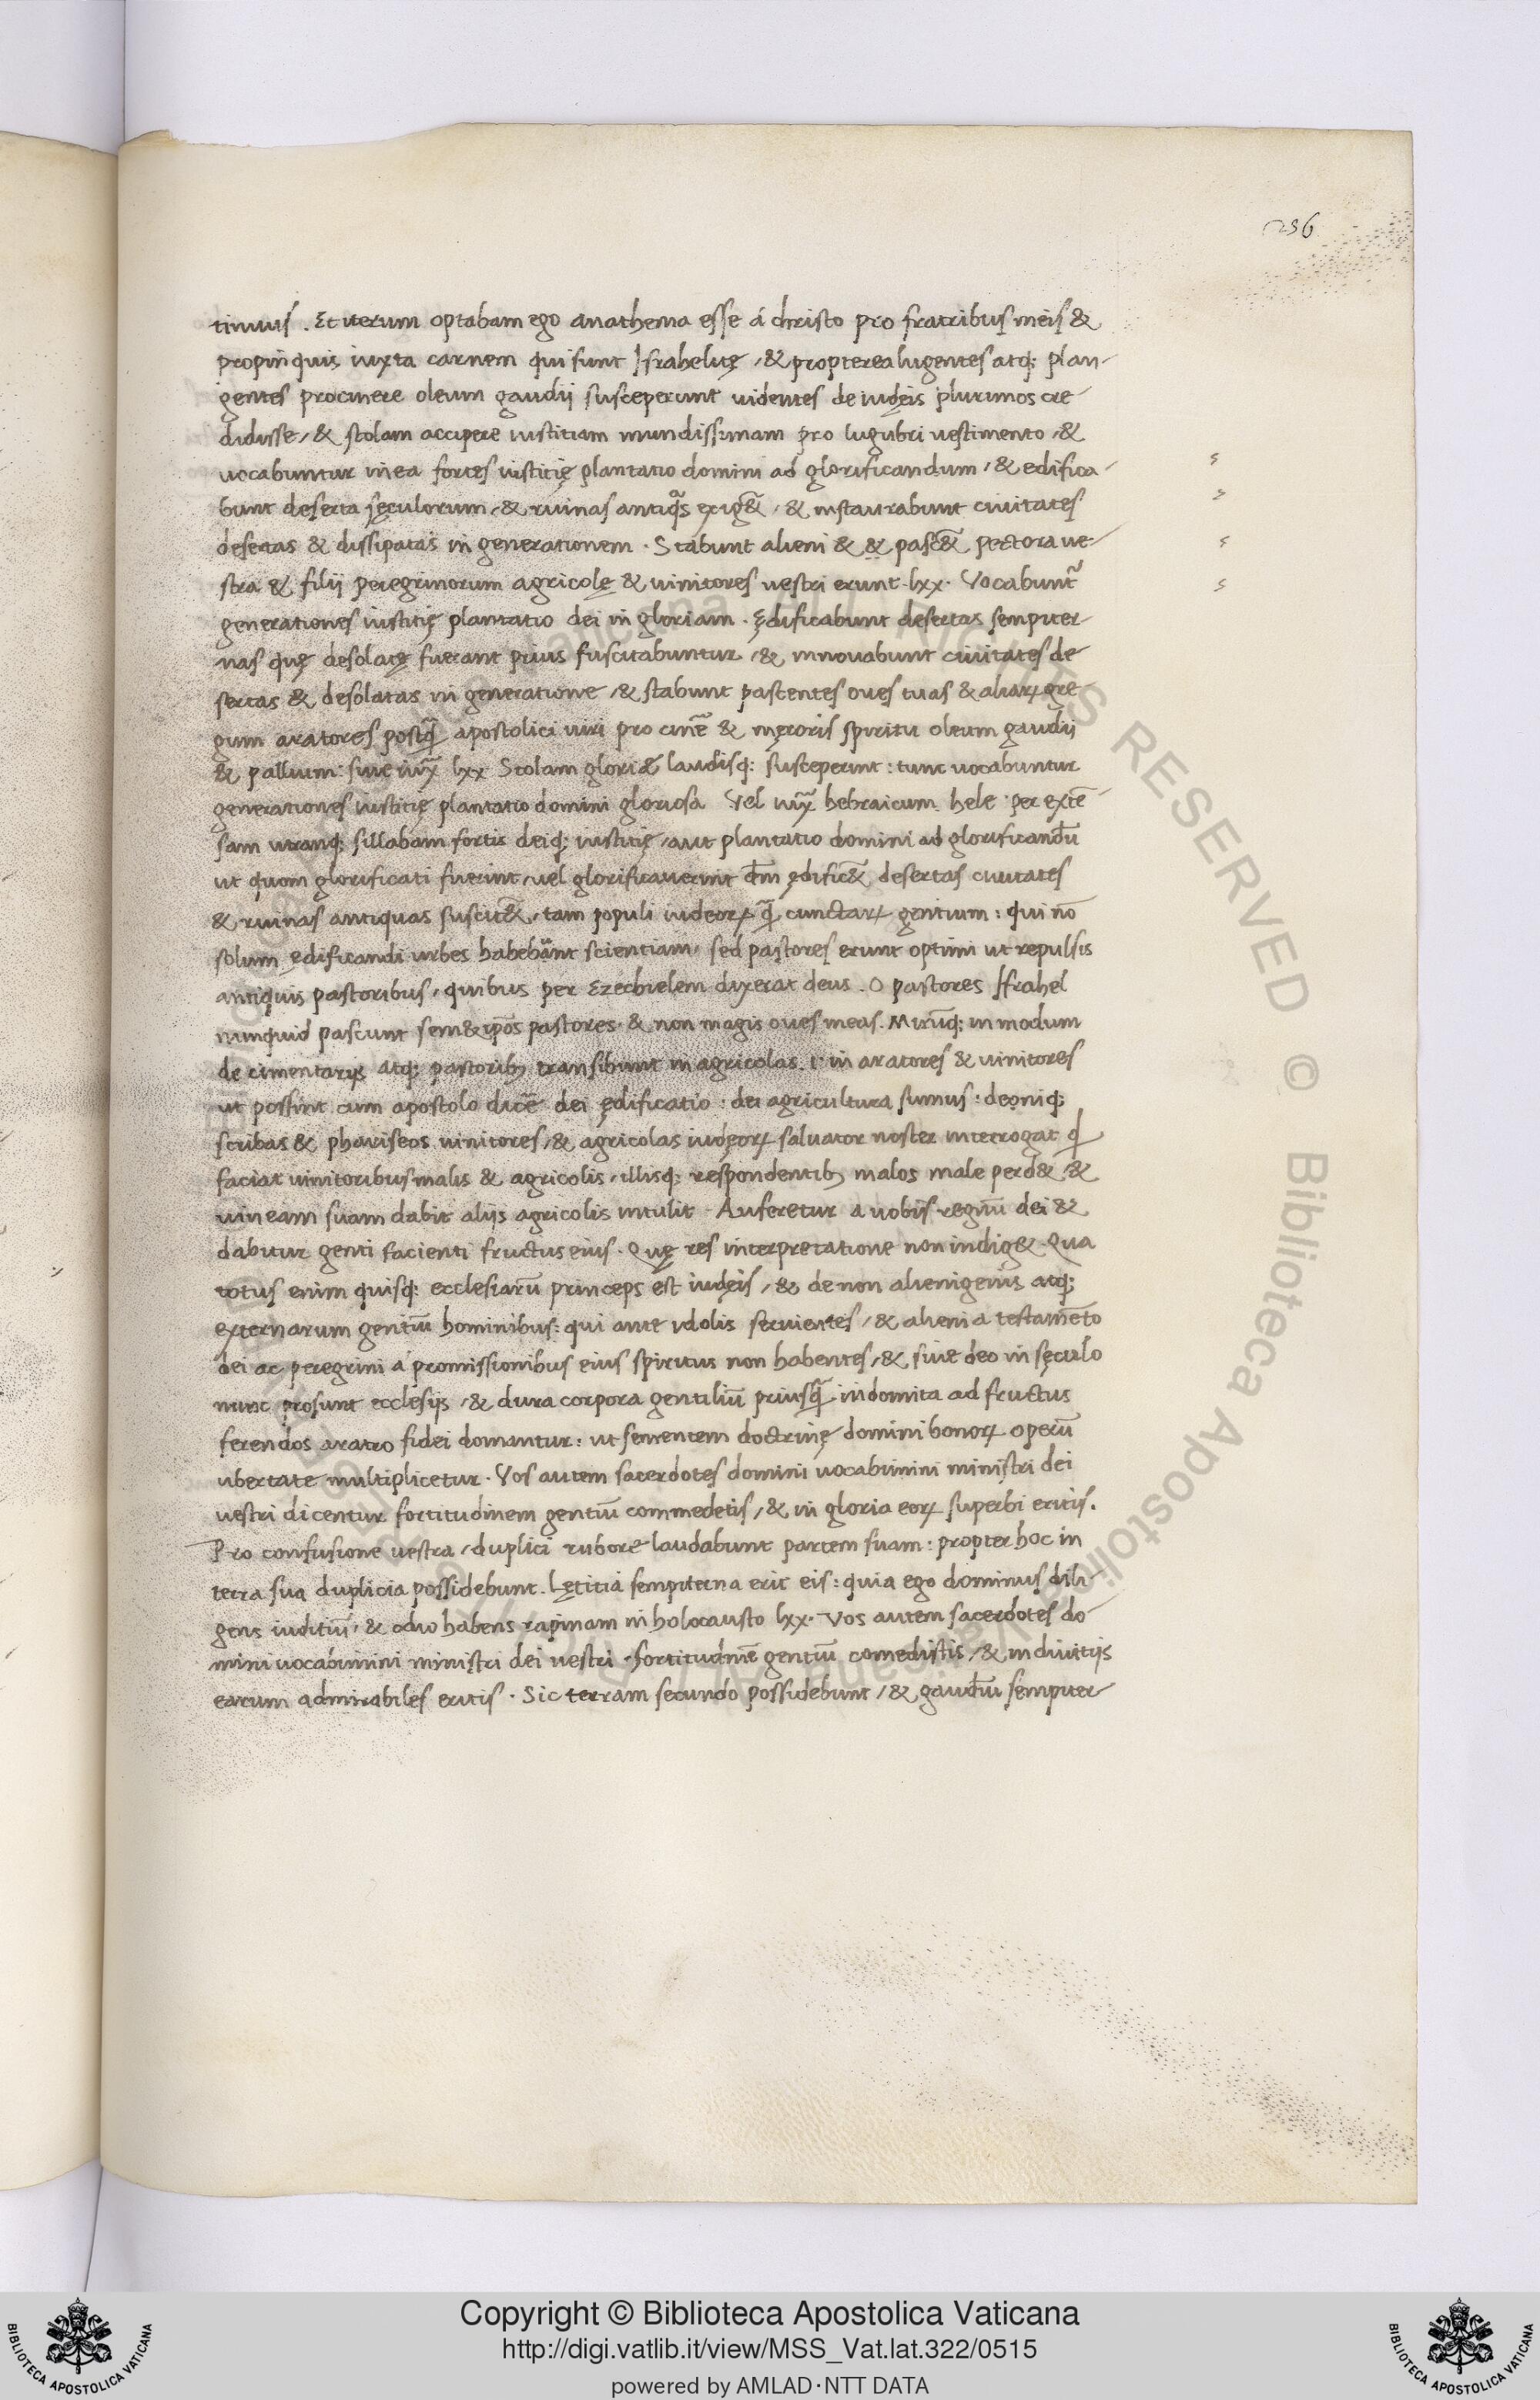 256
timius . Et iterum optabam ego anathema esse á christo pro fratribus meis &
propinquis iuxta carnem qui sunt Israhelitę , & propterea lugentes atq; plan-
gentes pro cinere oleum gaudij susceperunt uidentes de iudęis plurimos cre
didisse , & stolam accipere iustitiam mundissimam pro lugubri uestimento , &
uocabuntur in ea fortes iustitię plantatio domini ad glorificandum , & edifica-
bunt deserta sęculorum , & ruinas antiq̃s erig&̃ , & instaurabunt ciuitates
desertas & dissipatas in generationem . Stabunt alieni & & pasc&̃ pectora ue-
stra & filij peregrinorum agricolę & uinitores uestri erunt . lxx . Vocabunt᷑
generationes iustitię plantatio dei in gloriam . Ędificabunt desertas sempiter-
nas quę desolatę fuerant prius suscitabuntur , & innouabunt ciuitates de
sertas & desolatas in generatione , & stabunt pastentes oues tuas & aliaꝝ gre-
gum aratores postq̃ apostolici uiri pro cinẽ & męroris spiritu oleum gaudij
& pallium : siue iux̃ lxx Stolam glori& laudisq; susceperint : tunc uocabuntur
generationes iustitię plantatio domini gloriosa Vel iux̃ hebraicum hele per extẽ
sam utranq; sillabam fortis deiq; iustitię , aut plantatio domini ad glorificandũ
ut quom glorificati fuerint , uel glorificauerint dm̃ ędific&̃ desertas ciuitates
& ruinas antiquas suscit&̃ , tam populi iudeoꝝ q̃ cunctaꝝ gentium : qui nõ
solum ędificandi urbes habebant scientiam , sed pastores erunt optimi ut repulsis
antiquis pastoribus , quibus per Ezechielem dixerat deus . O pastores Israhel
nunquid pascunt sem&ip̃os pastores . & non magis oues meas . Mirũq; in modum
de cimentarijs atq; pastoribꝫ transibunt in agricolas . i . in aratores & uinitores
ut possint cum apostolo dicẽ dei ędificatio : dei agricultura sumus : deoniq;
scribas & phariseos uinitores , & agricolas iudęoꝝ saluator noster interrogat qd
faciat uinitoribus malis & agricolis , illisq; respondentibꝫ malos male perd& , &
uineam suam dabit alijs agricolis intulit . Auferetur a uobis regnũ dei &
dabitur genti facienti fructus eius . Quę res interpretatione non indig& . Qua
totus enim quisq; ecclesiarũ princeps est iudęis , & de non alienigenis atq;
externarum gentiũ hominibus : qui ante idolis seruientes , & alieni a testamẽto
dei ac peregrini a promissionibus eius spiritus non habentes , & sine deo in sęculo
nunc prosunt ecclesijs , & dura corpora gentiliũ priusq̃ indomita ad fructus
ferendos aratro fidei domantur : ut sementem doctrinę domini bonoꝝ operũ
ubertate multiplicetur . Vos autem sacerdotes domini uocabimini ministri dei
uestri dicentur fortitudinem gentiũ commedetis , & in gloria eoꝝ superbi eritis .
Pro confusione uestra , duplici rubore laudabunt partem suam : propter hoc in
terra sua duplicia possidebunt . Lętitia sempiterna erit eis : quia ego dominus dili-
gens iuditiũ , & odio habens rapinam in holocausto lxx . Vos autem sacerdotes do
mini uocabimini ministri dei uestri . fortitudinẽ gentiũ comedistis , & in diuitijs
earum admirabiles eritis . Sic terram secundo possidebunt , & gaudiũ sempiter
Copyright © Biblioteca Apostolica Vaticana
http://digi.vatlib.it/view/MSS_Vat.lat.322/0515
powered by AMLAD·NTT DATA